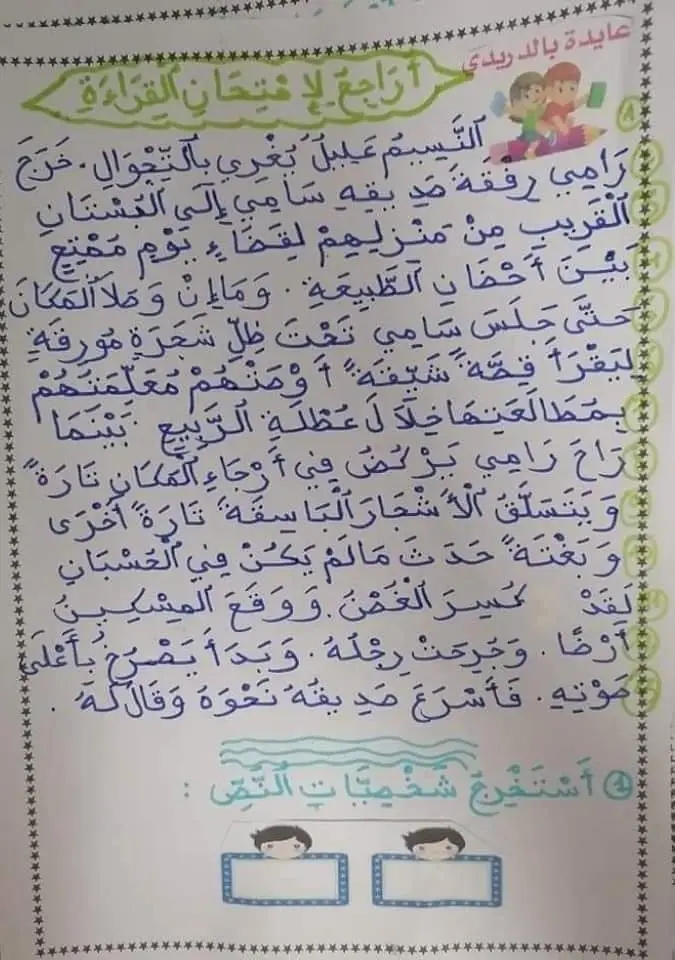 عايدة بالدريدي
أُرَاجِعُ لِامْتِحَانِ الْقِرَاءَةِ
النَّسِيمُ عَلِيلٌ يُغْرِي بِالتِّجْوَالِ. خَرَجَ
رَامِي رِفْقَةَ صَدِيقِهِ سَامِي إِلَى الْبُسْتَانِ
الْقَرِيبِ مِنْ مَنْزِلِهِمْ لِقَضَاءِ يَوْمٍ مُمْتِعٍ
بَيْنَ أَحْضَانِ الطَّبِيعَةِ. وَمَا إِنْ وَصَلَا الْمَكَانَ
حَتَّى جَلَسَ سَامِي تَحْتَ ظِلِّ شَجَرَةٍ مُورِقَةٍ
لِيَقْرَأَ قِصَّةً شَيِّقَةً أَوْصَتْهُمْ مُعَلِّمَتُهُمْ
بِمُطَالَعَتِهَا خِلَالَ عُطْلَةِ الرَّبِيعِ بَيْنَمَا
رَاحَ رَامِي يَرْكُضُ فِي أَرْجَاءِ الْمَكَانِ تَارَةً
وَيَتَسَلَّقُ الْأَشْجَارَ الْبَاسِقَةَ تَارَةً أُخْرَى
وَبَغْتَةً حَدَثَ مَا لَمْ يَكُنْ فِي الْحُسْبَانِ
لَقَدْ كُسِرَ الْغُصْنُ وَوَقَعَ الْمِسْكِينُ
أَرْضًا. وَجُرِحَتْ رِجْلُهُ. وَبَدَأَ يَصْرُخُ بِأَعْلَى
صَوْتِهِ. فَأَسْرَعَ صَدِيقُهُ نَحْوَهُ وَقَالَ لَهُ.
1 أَسْتَخْرِجُ شَخْصِيَّاتِ النَّصِّ :